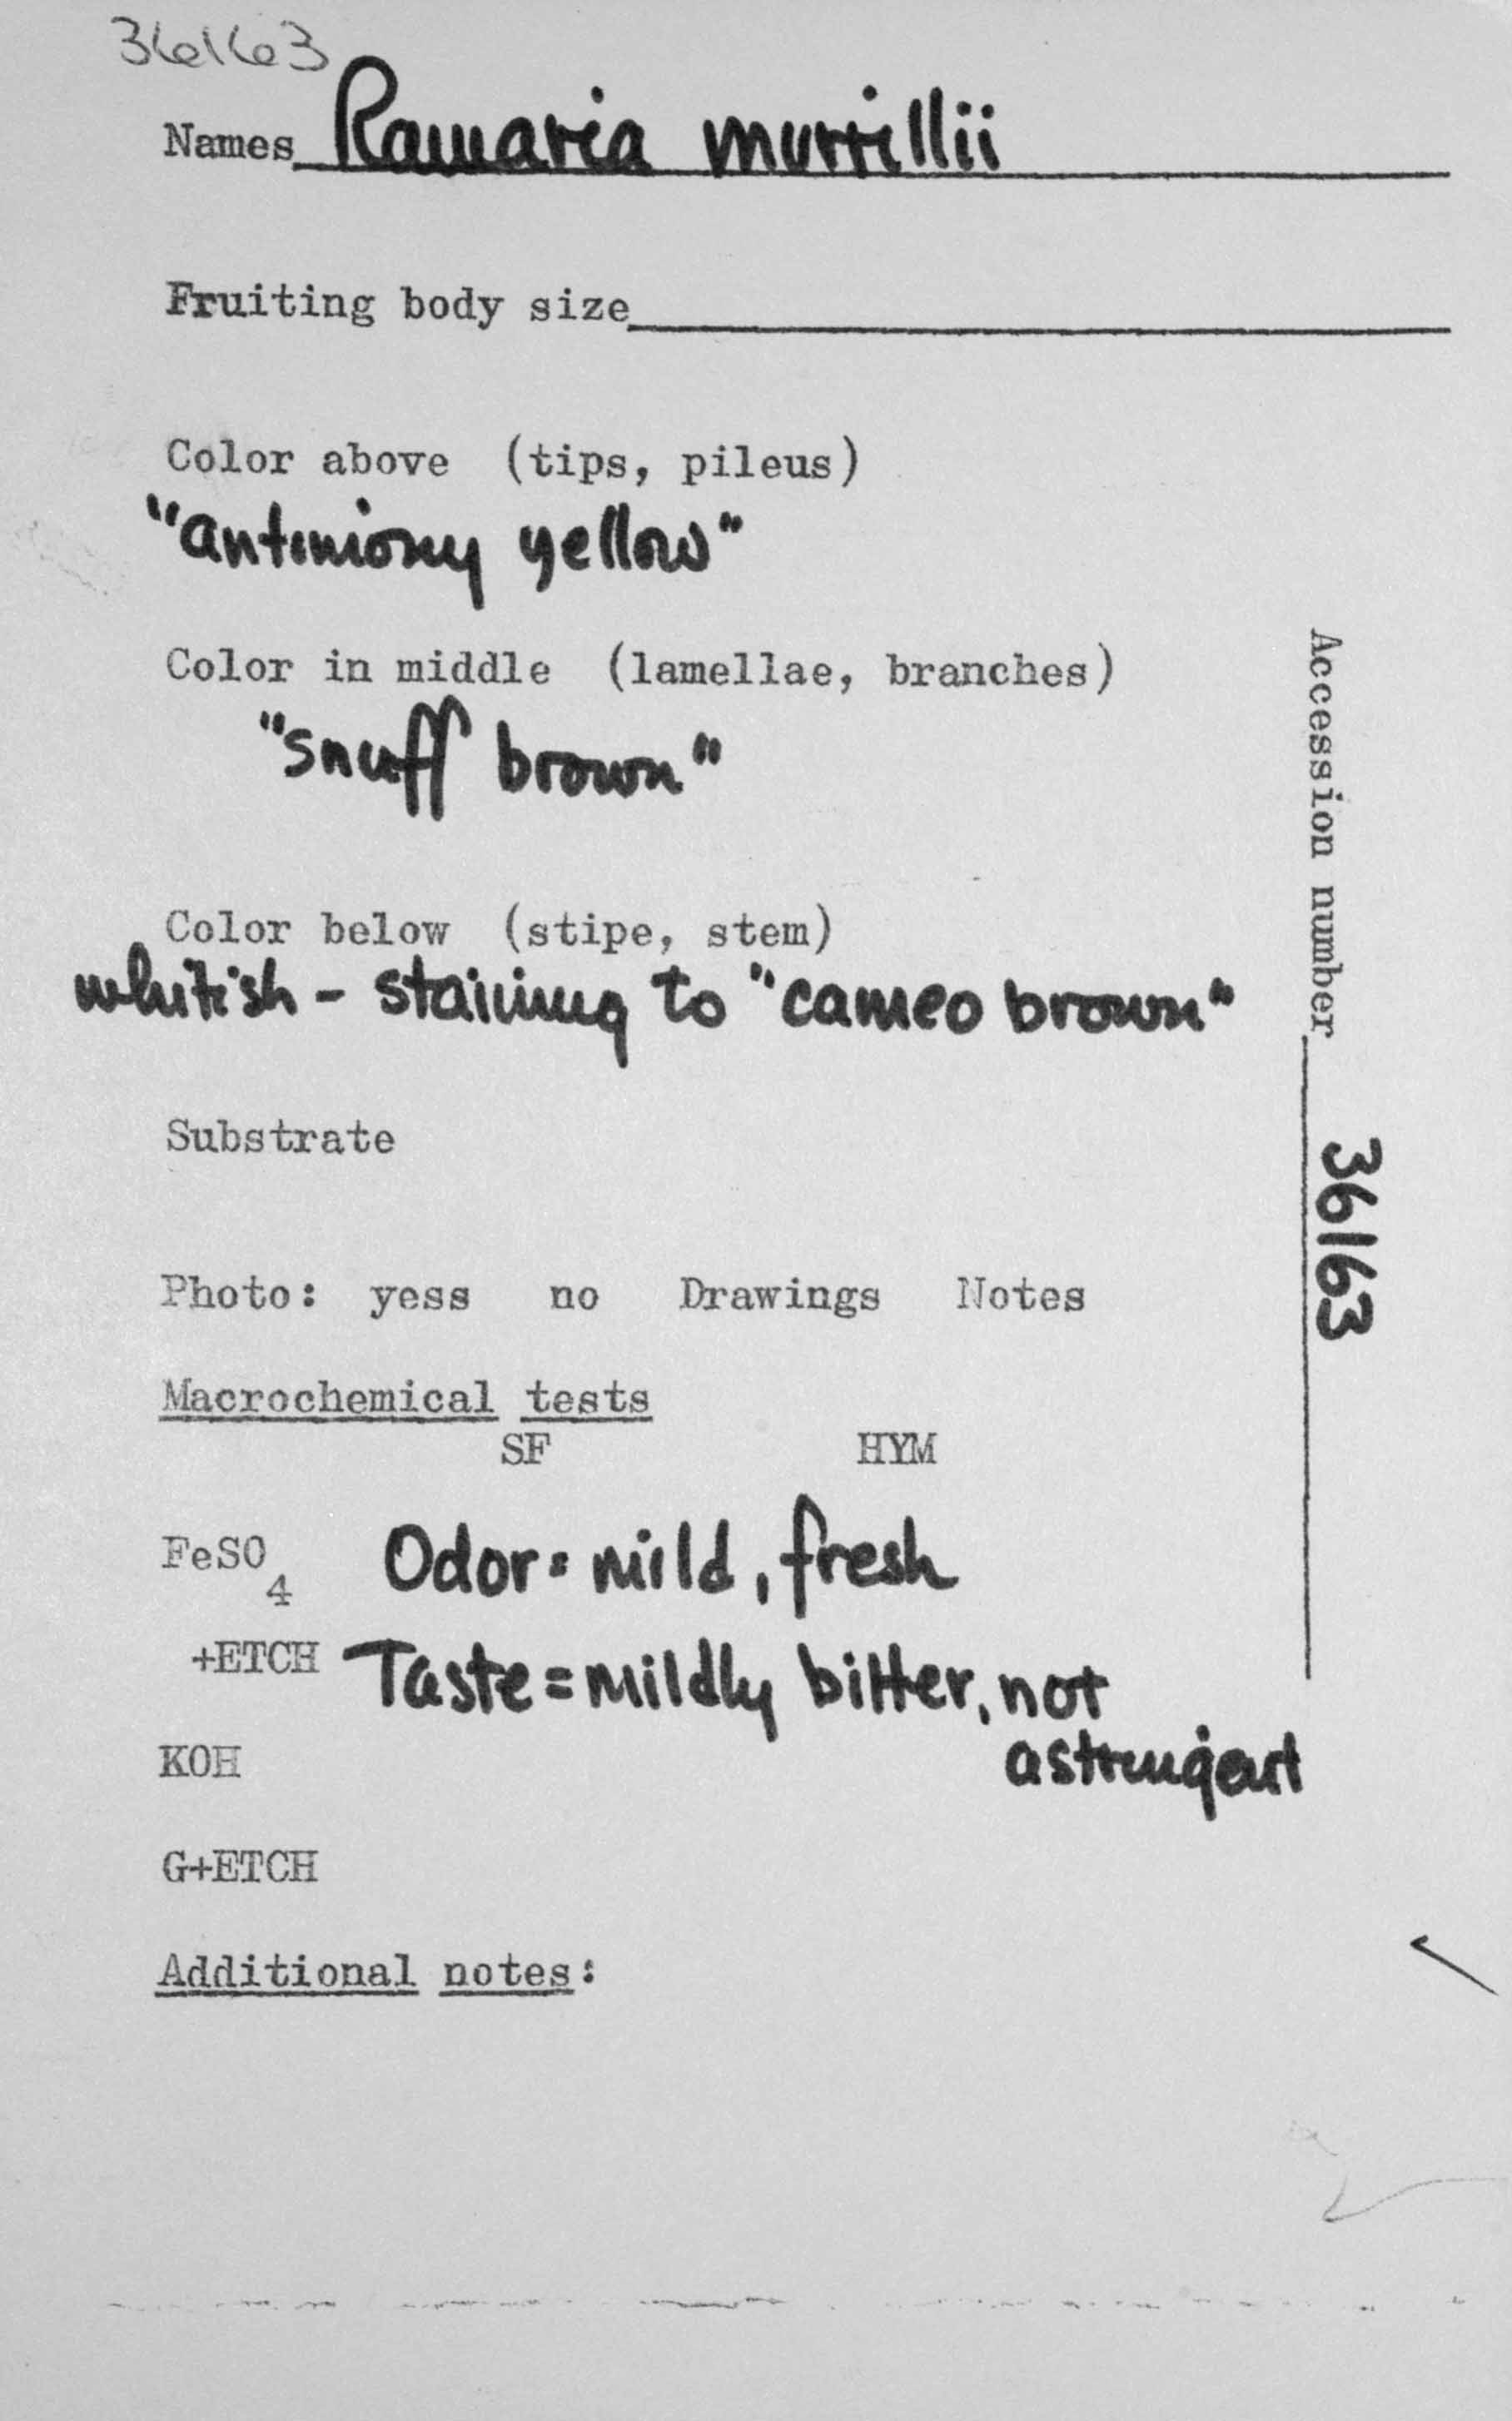 36163
Names Ramaria murrillii
Fruiting body size
Color above (tips, pileus)
"antimony yellow"
Color in middle (lamellae, branches)
"snuff brown"
Color below (stipe, stem)
whitish - staining to "cameo brown"
Substrate
Photo: yess no Drawings Notes
Macrochemical tests
SF HYM
FeSO4 Odor = mild, fresh
+ETCH Taste = mildly bitter, not
KOH astringent
G+ETCH
Additional notes:
Accession number 36163